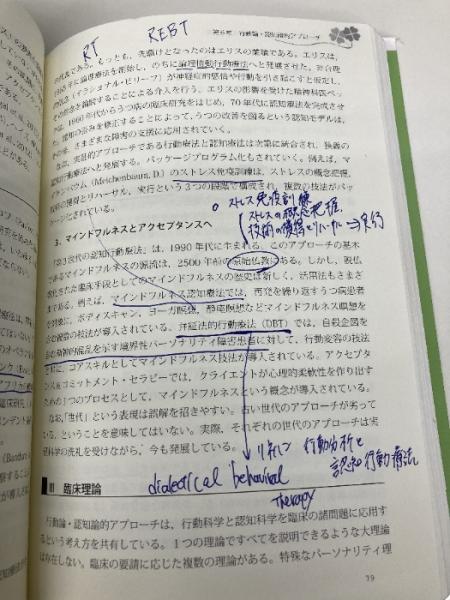 RT REBT
第5章 行動論・認知論的アプローチ
代表である。もっとも、先駆けとなったのはエリスの業績である。エリスは、
に論理療法を開始し、のちに論理情動行動療法へと発展させた。非合理
的信念（イラショナル・ビリーフ）が神経症的感情や行動を引き起こすと仮定し、
その信念を論駁することによる介入を行う。エリスの影響を受けた精神科医ベッ
は、1960年代からうつ病の臨床研究をはじめ、70年代に認知療法を完成させ
た。認知の歪みを修正することによって、うつの改善を図るという認知モデルは、
その後、さまざまな障害の支援に応用されていく。
なお、実践的アプローチである行動療法と認知療法は次第に統合され、狭義の
認知行動療法へと発展する。パッケージプログラム化もされていく。例えば、マ
イケンバウム（Meichenbaum, D.）のストレス免疫訓練は、ストレスの概念把握、
技術の獲得とリハーサル、実行という3つの段階で構成され、複数の技法がパッ
ケージ化されている。
ストレス免疫訓練
ストレスの概念把握、
技術の獲得とリハーサル⇒実行
3. マインドフルネスとアクセプタンスへ
「第3世代の認知行動療法」は、1990年代に生まれる。このアプローチの基本
であるマインドフルネスの源流は、2500年前の原始仏教にある。しかし、脱仏
教化された臨床手段としてのマインドフルネスの歴史は新しく、活用法もさまざ
まである。例えば、マインドフルネス認知療法では、再発を繰り返すうつ病患者
を対象に、ボディスキャン、ヨーガ瞑想、静座瞑想などマインドフルネス瞑想を
含む複数の技法が導入されている。弁証法的行動療法（DBT）では、自殺企図を
含む精神的混乱を示す境界性パーソナリティ障害患者に対して、行動変容の技法
とともに、コアスキルとしてマインドフルネス技法が導入されている。アクセプタ
ンス＆コミットメント・セラピーでは、クライエントが心理的柔軟性を作り出す
ための1つのプロセスとして、マインドフルネスという概念が導入されている。
なお、「世代」という表現は誤解を招きやすい。古い世代のアプローチが劣って
いる、ということを意味してはいない。実際、それぞれの世代のアプローチは実
証科学の洗礼を受けながら、今も発展している。
リネハン 行動分析と
認知行動療法
dialectical behavioral
Therapy
III 臨床理論
行動論・認知論的アプローチは、行動科学と認知科学を臨床の諸問題に応用す
るという考え方を共有している。1つの理論ですべてを説明できるような大理論
は存在しない。臨床の要請に応じた複数の理論がある。特殊なパーソナリティ理
79